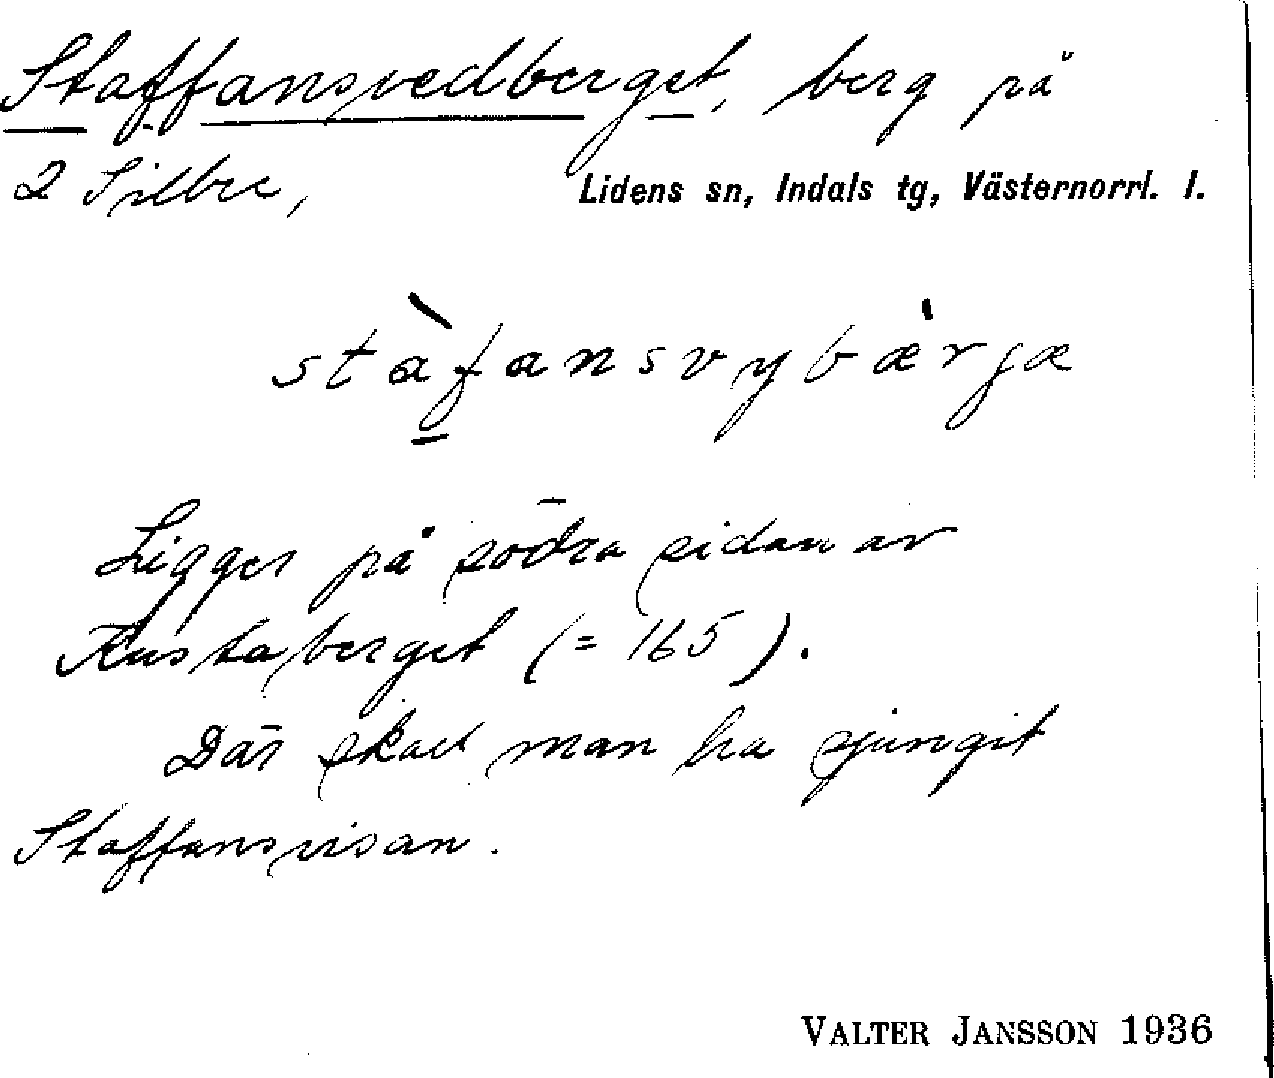 Staffansvedberget, berg på
2 Sillre, Lidens sn, Indals tg, Västernorrl. l.
stàfansvybæ̀rjæ
Ligger på södra sidan av
Rustaberget (= 165).
Där skall man ha sjungit
Staffansvisan.
VALTER JANSSON 1936